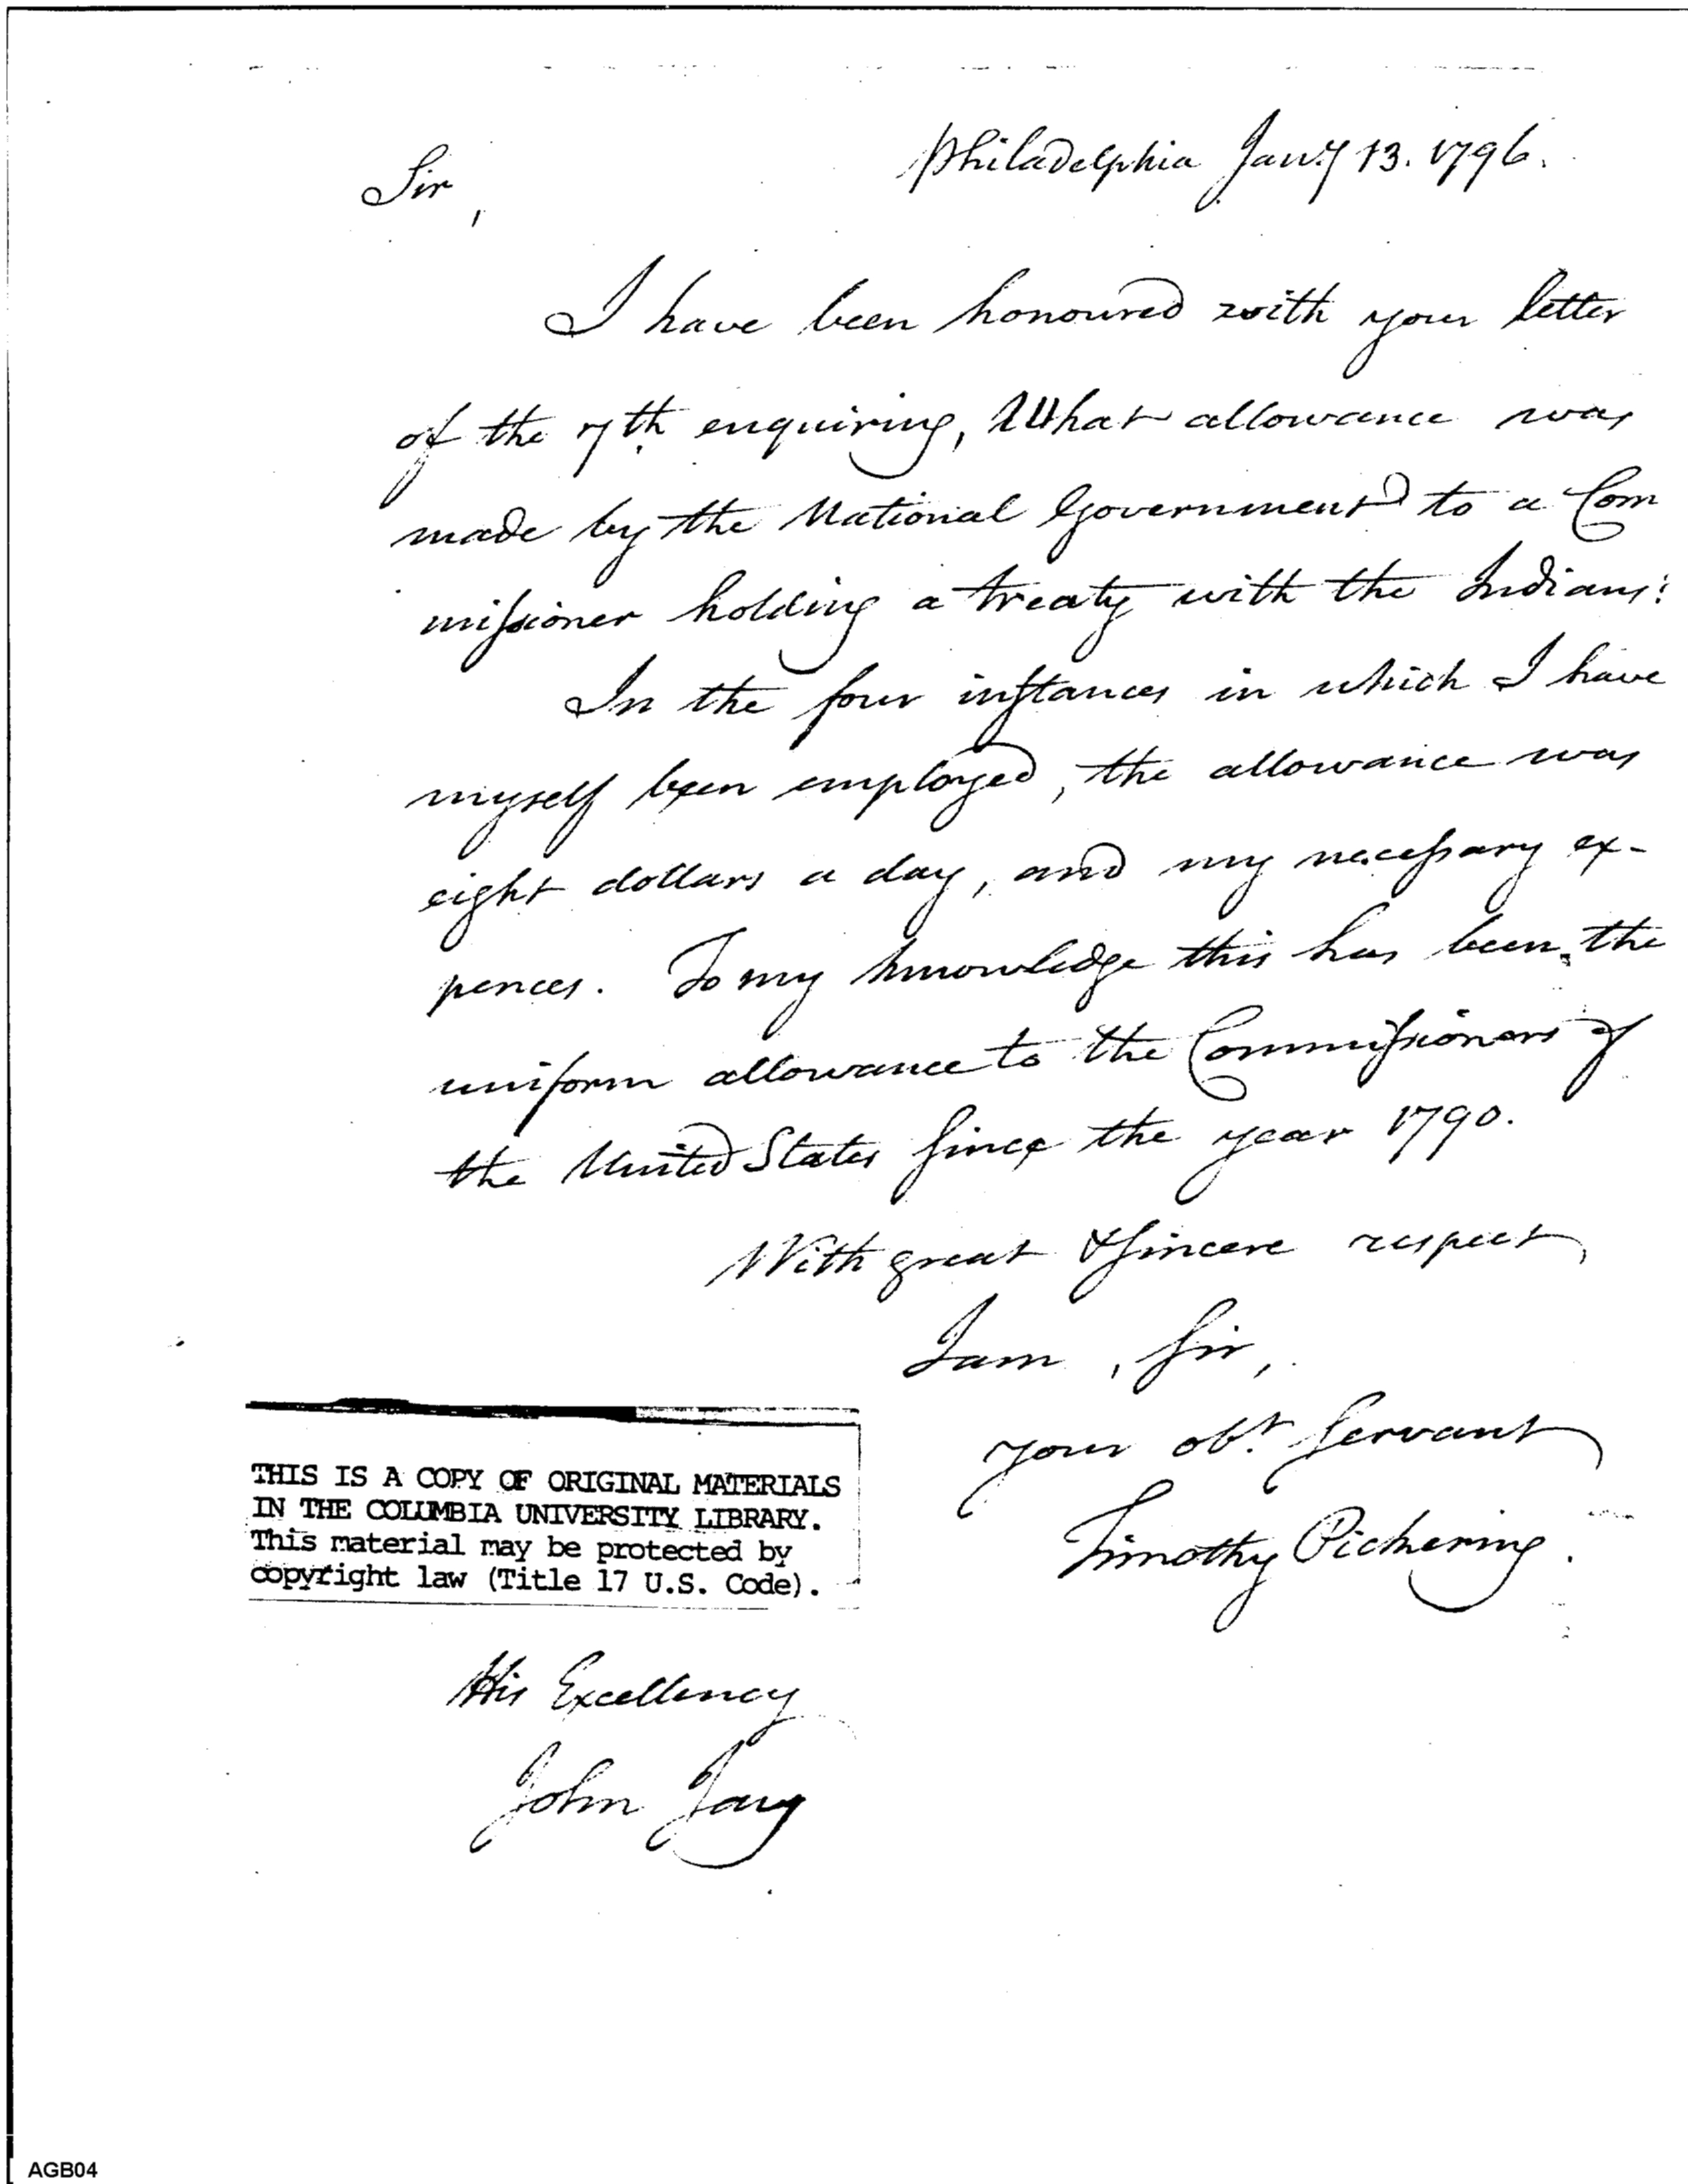 Philadelphia Jany 13. 1796.
Sir,
I have been honoured with your letter
of the 7th. enquiring, What allowance was
made by the National Government to a Com
missioner holding a treaty with the Indians?
In the four instances in which I have
myself been employed, the allowance was
eight dollars a day, and my necessary ex-
pences. To my knowledge this has been the
uniform allowance to the Commissioners of
the United States since the year 1790.
With great & sincere respect,
I am, sir,
your obt. servant
Timothy Pickering.
THIS IS A COPY OF ORIGINAL MATERIALS
IN THE COLUMBIA UNIVERSITY LIBRARY.
This material may be protected by
copyright law (Title 17 U.S. Code).
His Excellency
John Jay
AGB04